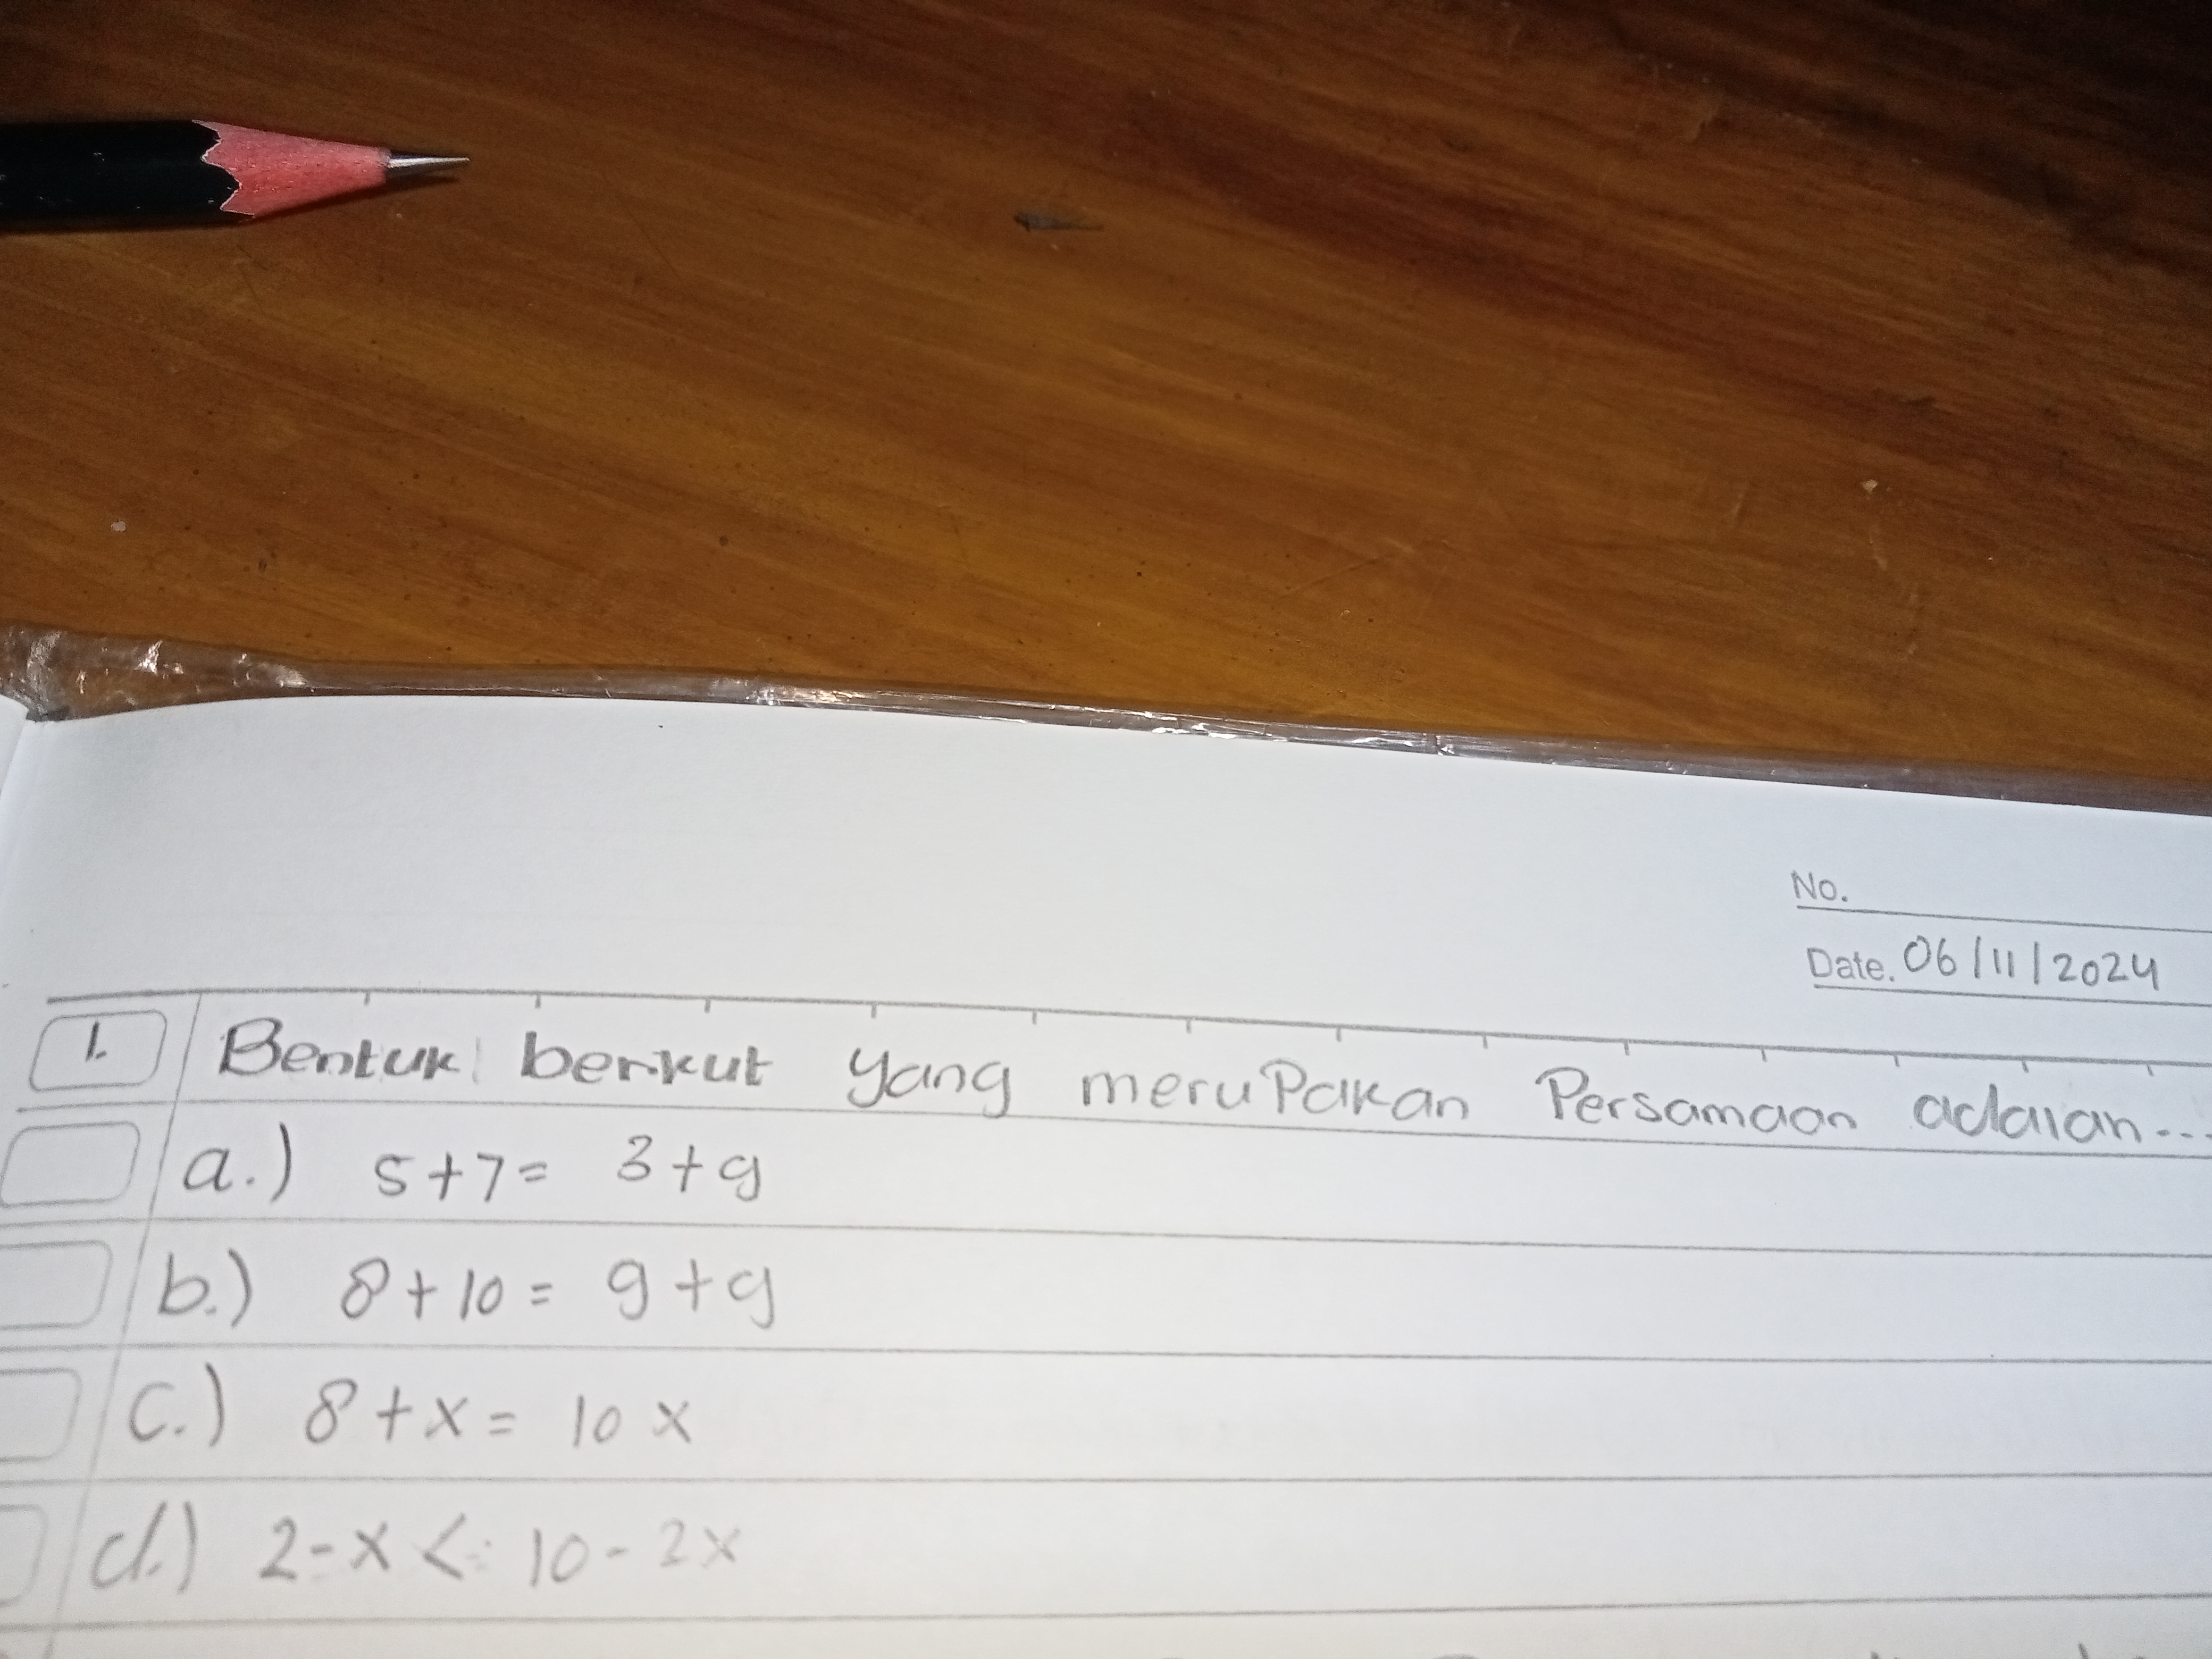 No.
Date. 06/11/2024
1. Bentuk berikut yang merupakan Persamaan adalah...
a.) 5+7= 3+9
b.) 8+10= 9+9
c.) 8+x= 10x
d.) 2-x < 10-2x